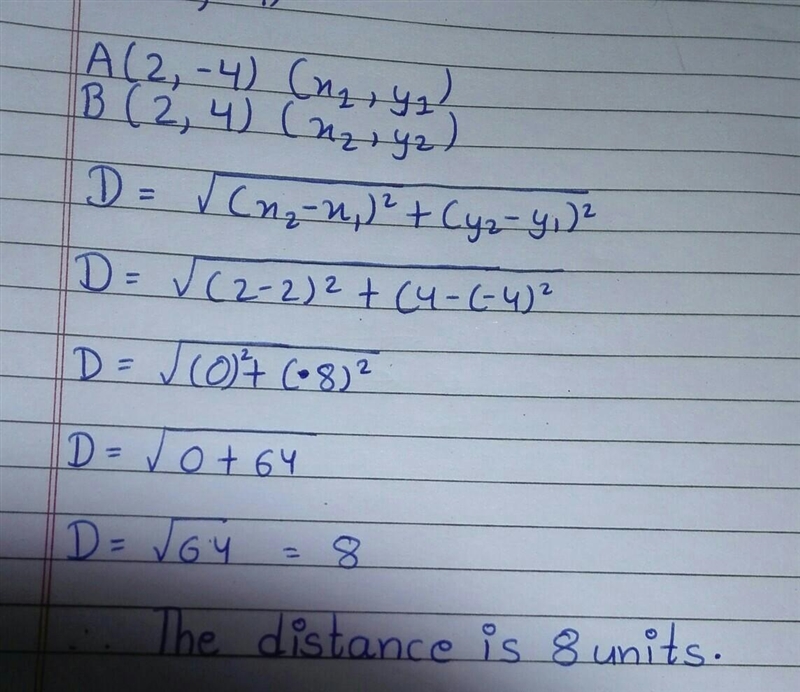 A(2, -4) (x₁, y₁)
B (2, 4) (x₂, y₂)
D = √(x₂-x₁)² + (y₂-y₁)²
D = √(2-2)² + (4-(-4)²
D = √(0)² + (•8)²
D = √0 + 64
D = √64 = 8
∴ The distance is 8 units.